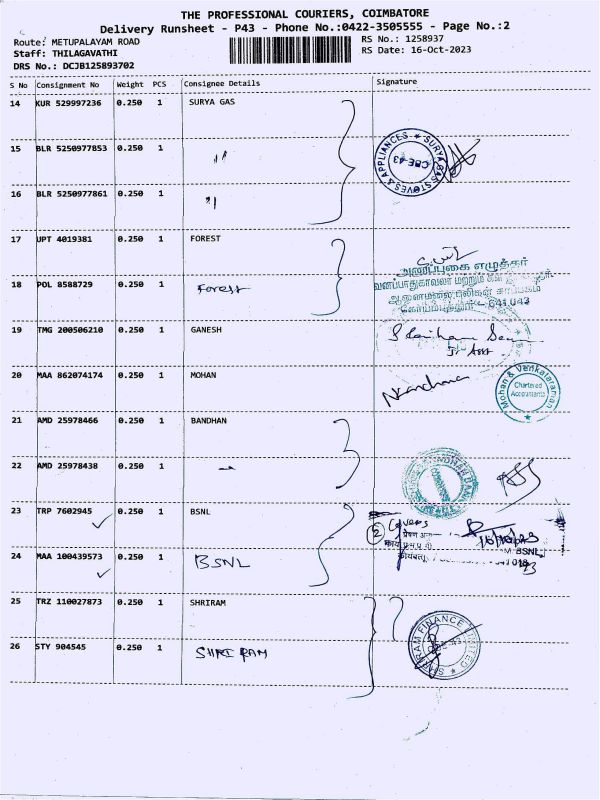 THE PROFESSIONAL COURIERS, COIMBATORE
Delivery Runsheet - P43 - Phone No.:0422-3505555 - Page No.:2
Route: METUPALAYAM ROAD RS No.: 1258937
Staff: THILAGAVATHI RS Date: 16-Oct-2023
DRS No.: DCJB125893702
S No Consignment No Weight PCS Consignee Details Signature
14 KUR 529997236 0.250 1 SURYA GAS
15 BLR 5250977853 0.250 1 〃
SURYA GAS STOVES & APPLIANCES ★ CBE-43
16 BLR 5250977861 0.250 1 〃
17 UPT 4019381 0.250 1 FOREST
அனுப்புகை எழுத்தர்
வனப்பாதுகாவலர் மற்றும் கள இயக்குநர்
ஆனைமலை புலிகள் காப்பகம்
கோயம்புத்தூர் - 641 043
18 POL 8588729 0.250 1 Forest
19 TMG 200506210 0.250 1 GANESH
Jr Asst
20 MAA 862074174 0.250 1 MOHAN
Mohan & Venkataraman
Chartered
Accountants
21 AMD 25978466 0.250 1 BANDHAN
22 AMD 25978438 0.250 1 〃
23 TRP 7602945 0.250 1 BSNL
2 Covers
16/10/23
BSNL
24 MAA 100439573 0.250 1 BSNL
25 TRZ 110027873 0.250 1 SHRIRAM
SHRIRAM FINANCE LIMITED ★
26 STY 904545 0.250 1 SHRI RAM